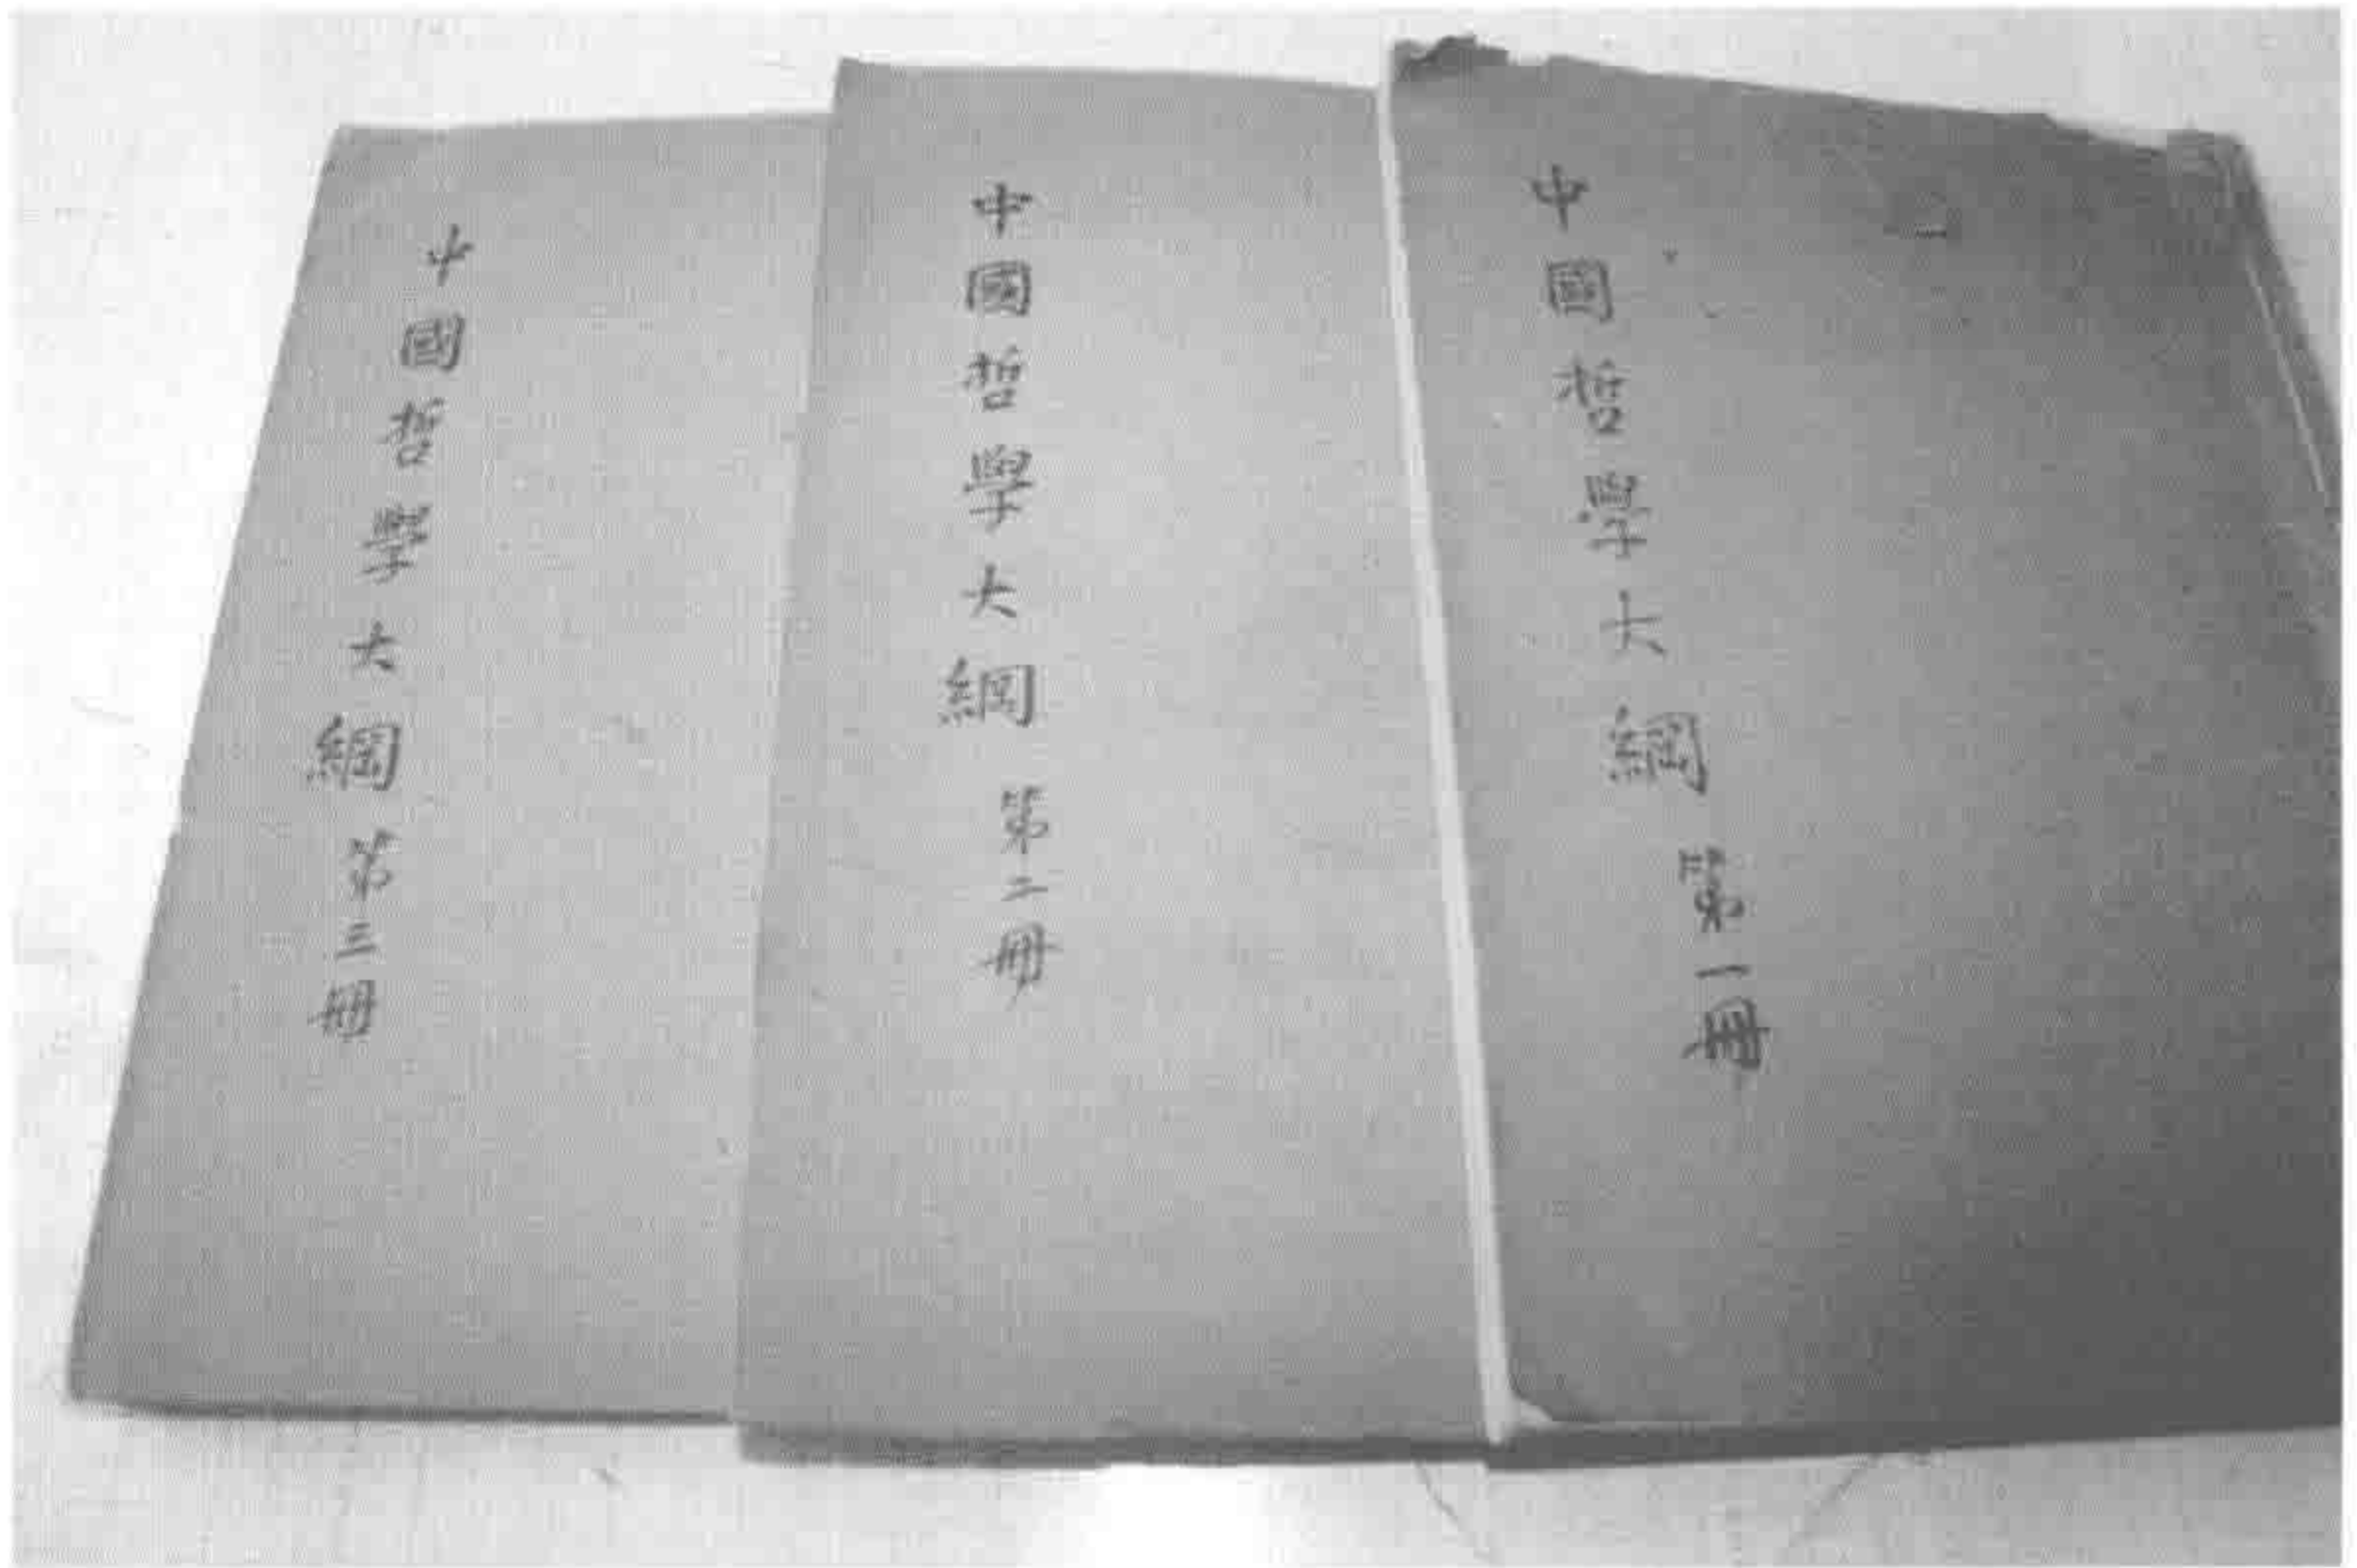 中國哲學大綱 第一冊
中國哲學大綱 第二冊
中國哲學大綱 第三冊